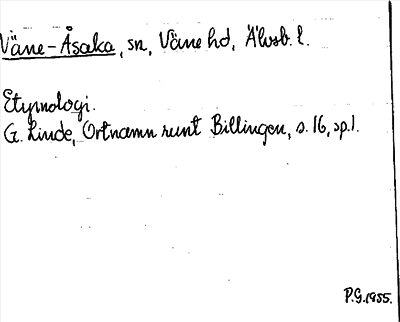 Väne-Åsaka, sn, Väne hd, Älvsb. l.
Etymologi.
G. Linde, Ortnamn runt Billingen, s. 16, sp. 1.
P.G. 1955.